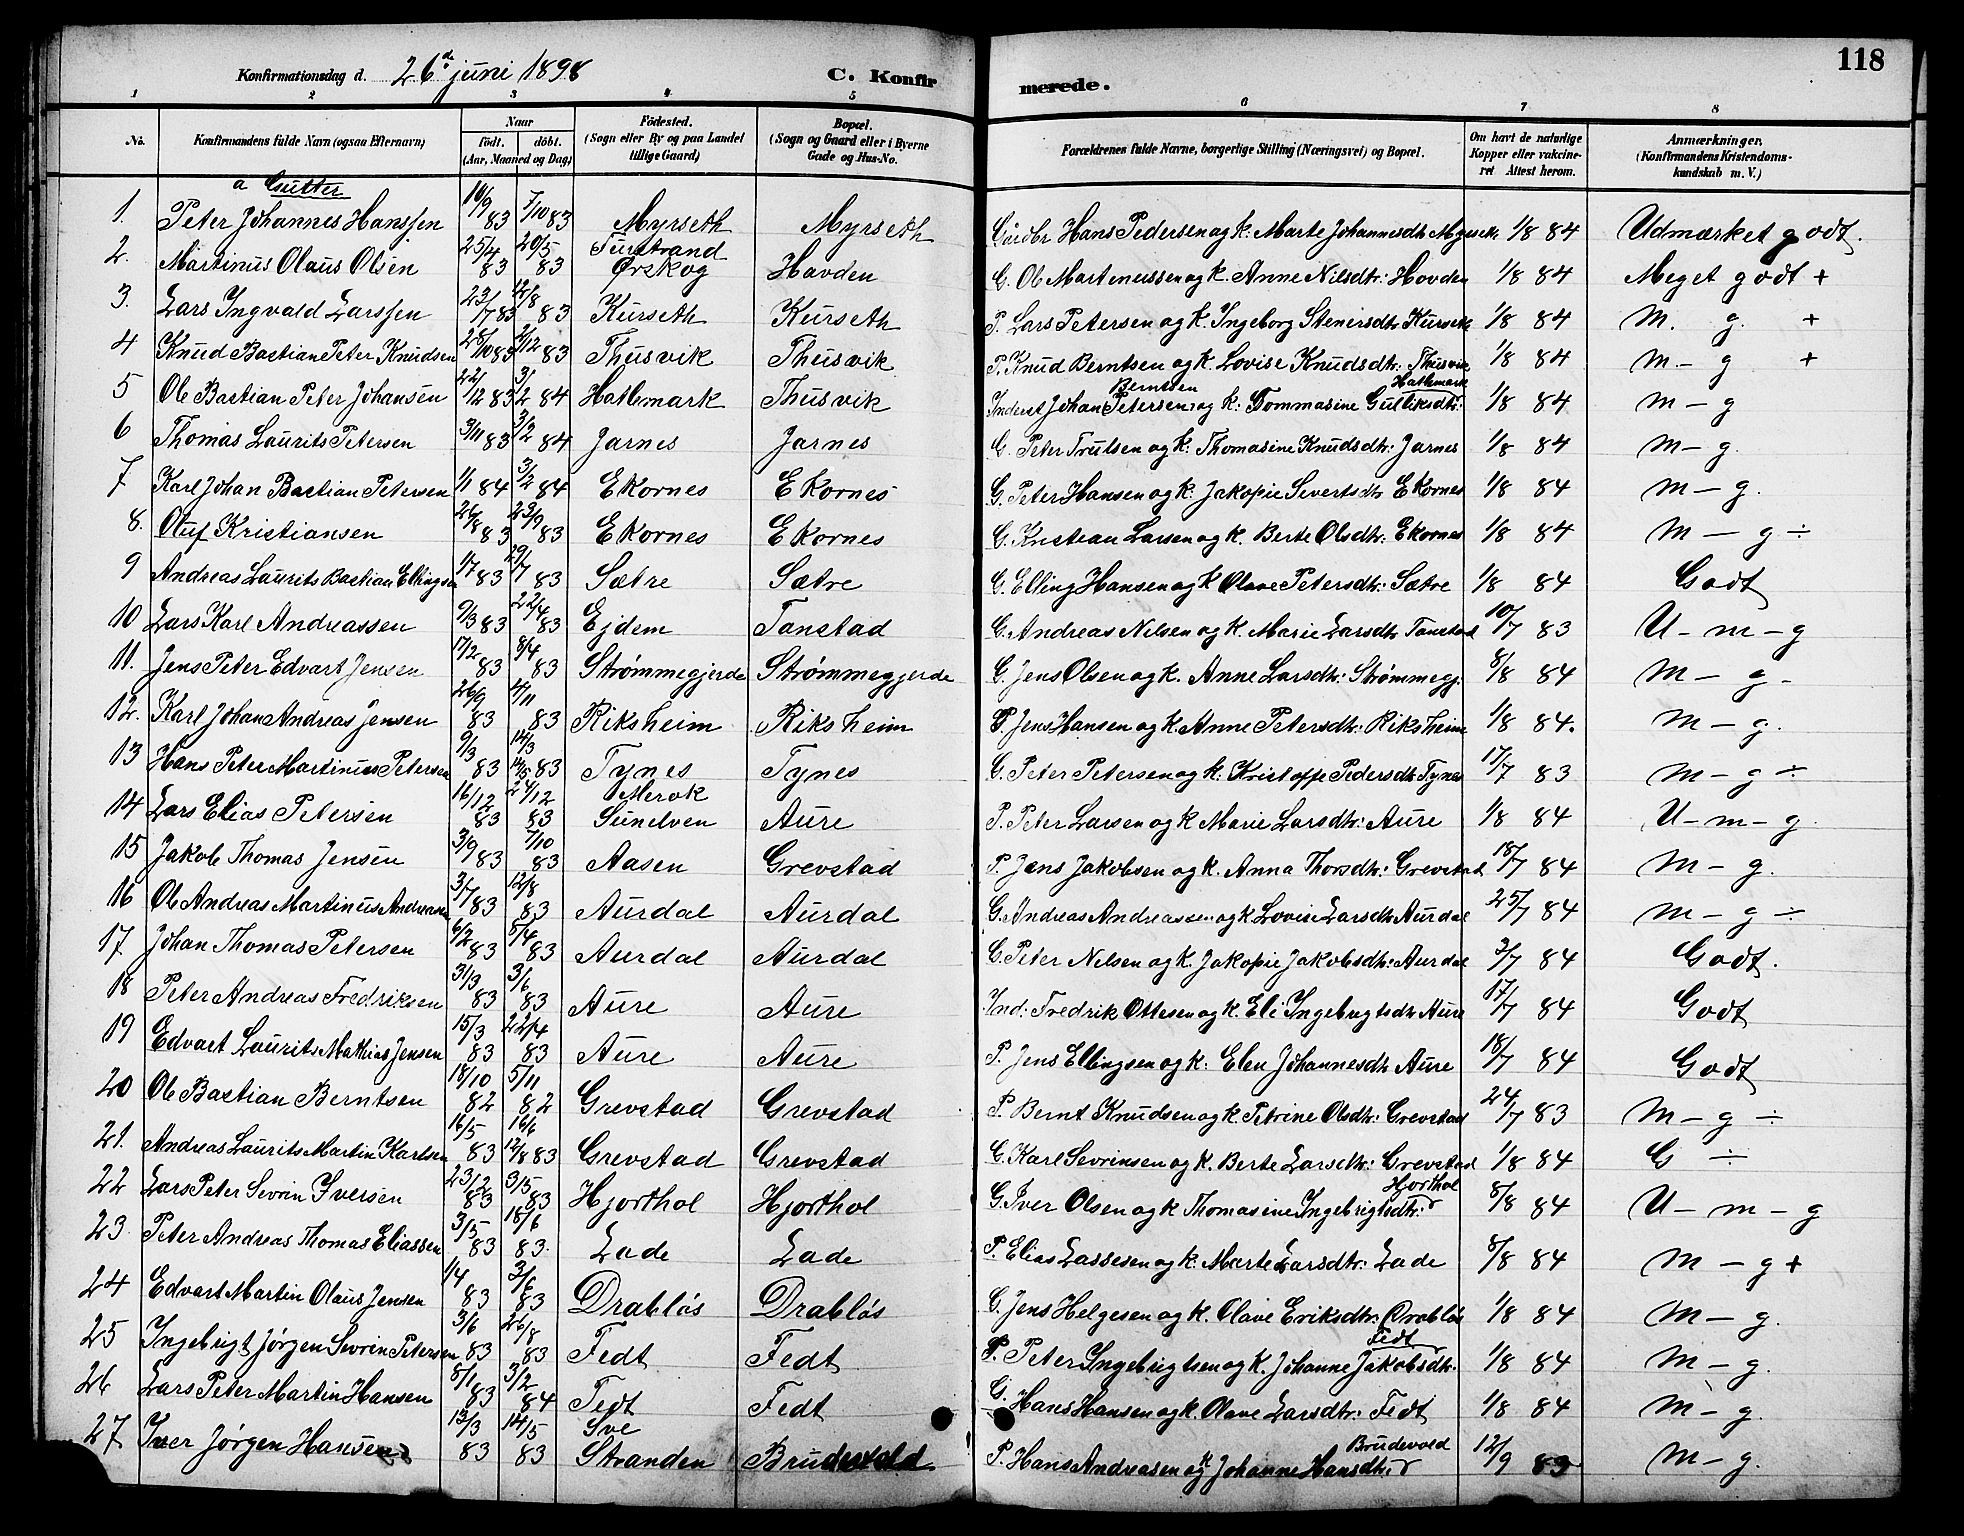 118
Konfirmationsdag d. 26de juni 1898 C. Konfirmerede.
1 2 3 4 5 6 7 8
No. Konfirmandens fulde Navn (ogsaa Efternavn) Naar födt. döbt. (Aar, Maaned og Dag) Födested. (Sogn eller By og paa Landet tillige Gaard) Bopæl. (Sogn og Gaard eller i Byerne Gade og Hus-No. Forældrenes fulde Navne, borgerlige Stilling (Næringsvei) og Bopæl. Om havt de naturlige Kopper eller vakcineret Attest herom. Anmærkninger, (Konfirmandens Kristendomskundskab m. V.)
a Gutter
1. Peter Johannes Hanssen 16/9 83 7/10 83 Myrseth Myrseth Gurdbr Hans Pedersen og k: Marte Johannesdtr Myrseth 1/8 84 Udmærket godt.
2. Martinus Olaus Olsen 25/4 83 20/5 83 Furstrand Ørskog Hovden G. Ole Martinussen og k. Anne Nilsdtr: Hovden 1/8 84 Meget godt +
3. Lars Ingvald Larssen 23/7 83 12/8 83 Kurseth Kurseth P. Lars Petersen og k. Ingeborg Stenersdtr Kurseth 1/8 84 M. g. +
4 Knud Bastian Peter Knudsen 28/10 83 2/12 83 Thusvik Thusvik P. Knud Berntsen og k. Lovise Knudsdtr: Thusvik 1/8 84 M - g +
5 Ole Bastian Peter Johansen 22/12 83 3/2 84 Hatlemark Thusvik Inderst Johan Berntsen Petersen og k: Tommasine Gulliksdtr: Hatlemark 1/8 84 M - g
6 Thomas Laurits Petersen 3/11 83 3/2 84 Jarnes Jarnes G. Peter Trulsen og k: Thomasine Knudsdtr: Jarnes 1/8 84 M - g.
7 Karl Johan Bastian Petersen 1/1 84 3/2 84 Ekornes Ekornes G. Peter Hansen og k: Jakopie Sivertsdtr Ekornes 1/8 84 M - g.
8. Oluf Kristiansen 26/8 83 23/9 83 Ekornes Ekornes G. Kristian Larsen og k. Berte Olsdtr: Ekornes 1/8 84 M - g ÷
9 Andreas Laurits Bastian Ellingsen 1/7 83 29/7 83 Sætre Sætre G. Elling Hansen og k Olave Petersdtr: Sætre 1/8 84 Godt
10 Lars Karl Andreassen 9/3 83 22/4 83 Ejdem Tanstad G. Andreas Nilsen og k. Marie Larsdtr Tanstad 10/7 83 U - m - g
11. Jens Peter Edvart Jensen 17/2 83 8/4 83 Strømmegjerde Strømmegjerde G. Jens Olsen og k. Anne Larsdtr: Strømmegj. 8/8 84 M - g -
12. Karl Johan Andreas Jensen 26/9 83 4/11 83 Riksheim Riksheim P. Jens Hansen og k. Anne Petersdtr: Riksheim 1/8 84. M - g.
13 Hans Peter Martinus Petersen 9/3 83 14/3 14/5 83 Tynes Tynes G. Peter Petersen og k: Kristoffe Pedersdtr Tynes 17/7 83 M - g ÷
14 Lars Elias Petersen 16/12 83 24/12 83 Merok Sunelven Aure P. Peter Larsen og k Marie Larsdtr: Aure 1/8 84 U - m - g.
15 Jakob Thomas Jensen 3/9 83 7/10 83 Aasen Grevstad P. Jens Jakobsen og k. Anna Thorsdtr: Grevstad 18/7 84 M - g.
16 Ole Andreas Martinus Andreasen 3/7 83 12/8 83 Aurdal Aurdal G. Andreas Andreassen og k Lovise Larsdtr Aurdal 25/7 84 M - g ÷
17. Johan Thomas Petersen 6/2 83 5/4 83 Aurdal Aurdal G. Peter Nilsen og k. Jakopie Jakobsdtr: Aurdal 3/7 84 Godt.
18 Peter Andreas Fredriksen 31/3 83 3/6 83 Aure Aure Ind: Fredrik Ottesen og k. Eli Ingebrigtsdtr Aure 17/7 84 Godt
19 Edvart Laurits Mathias Jensen 15/3 83 22/4 83 Aure Aure P. Jens Ellingsen og k: Elen Johannesdtr Aure 18/7 84 Godt
20 Ole Bastian Berntsen 18/10 82 5/11 82 Grevstad Grevstad P. Bernt Knudsen og k: Petrine Olsdtr: Grevstad 24/7 83 M - g ÷
21. Andreas Laurits Martin Karlsen 16/5 83 16/6 12/8 83 Grevstad Grevstad G. Karl Sevrinsen og k. Berte Larsdtr: Grevstad 1/8 84 G ÷
22 Lars Peter Sevrin Iversen 23/2 83 3/5 83 Hjorthol Hjorthol G. Iver Olsen og k Thomasine Ingebrigtsdtr: Hjorthol 8/8 84 U - m - g
23. Peter Andreas Thomas Eliassen 3/5 83 18/6 83. Lade Lade P. Elias Lassesen og k: Marte Larsdtr: Lade 8/8 84 M - g +
24 Edvart Martin Olaus Jensen 1/4 83 3/6 83 Drabløs Drabløs G. Jens Helgesen og k. Olave Eriksdtr: Drabløs 1/8 84 M - g.
25 Ingebrigt Jørgen Sevrin Petersen 3/6 83 26/8 83 Fedt Fedt P. Peter Ingebrigtsen og k. Johanne Jakobsdtr. Fedt 1/8 84 M - g.
26 Lars Peter Martin Hansen 8/1 83 3/2 84 Fedt Fedt G. Hans Hansen og k. Olave Larsdtr: Fedt 1/8 84 M - g.
27 Iver Jørgen Hansen 13/3 83 14/5 83 Sve Stranden Brudevold P. Hans Andreasen og k Johanne Hansdtr: Brudevold 12/9 85 M - g.